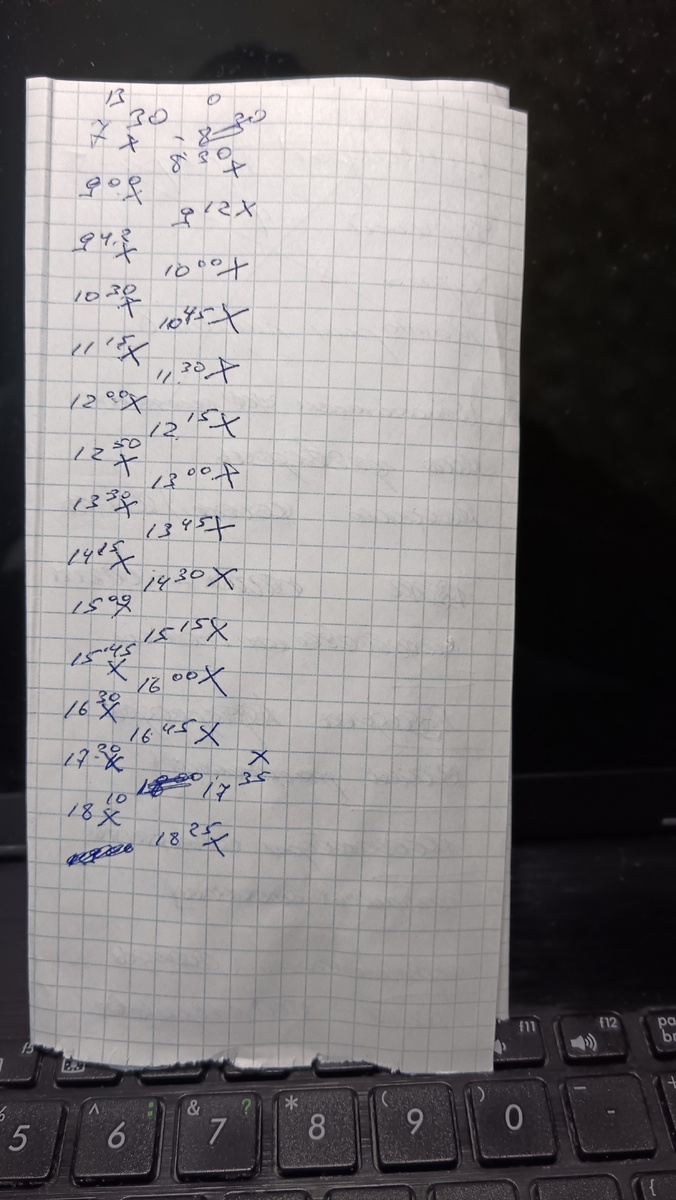 В O
7 30 X - 8 30
8 30 X
9 00 X
9 12 X
9 42 X
10 00 X
10 30 X
10 45 X
11 15 X
11 30 X
12 00 X
12 15 X
12 50 X
13 00 X
13 30 X
13 45 X
14 15 X
14 30 X
15 00 X
15 15 X
15 45 X
16 00 X
16 30 X
16 45 X
17 30 X
17 35 X
18 10 X
18 25 X
f5 f11 f12 pa
br
% 5 ^ 6 : & 7 ? * 8 ( 9 ) 0 _ - +
{